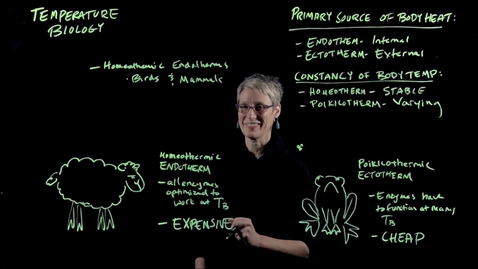 TEMPERATURE
BIOLOGY
- Homeothermic Endotherms
• Birds & Mammals
PRIMARY SOURCE OF BODY HEAT:
- ENDOTHEM - Internal
- ECTOTHERM - External
CONSTANCY OF BODY TEMP:
- HOMEOTHERM - STABLE
- POIKILOTHERM - Varying
Homeothermic
ENDOTHERM
- all enzymes
optimized to
work at TB
- EXPENSIVE
Poikilothermic
ECTOTHERM
- Enzymes have
to function at many
TB
- CHEAP